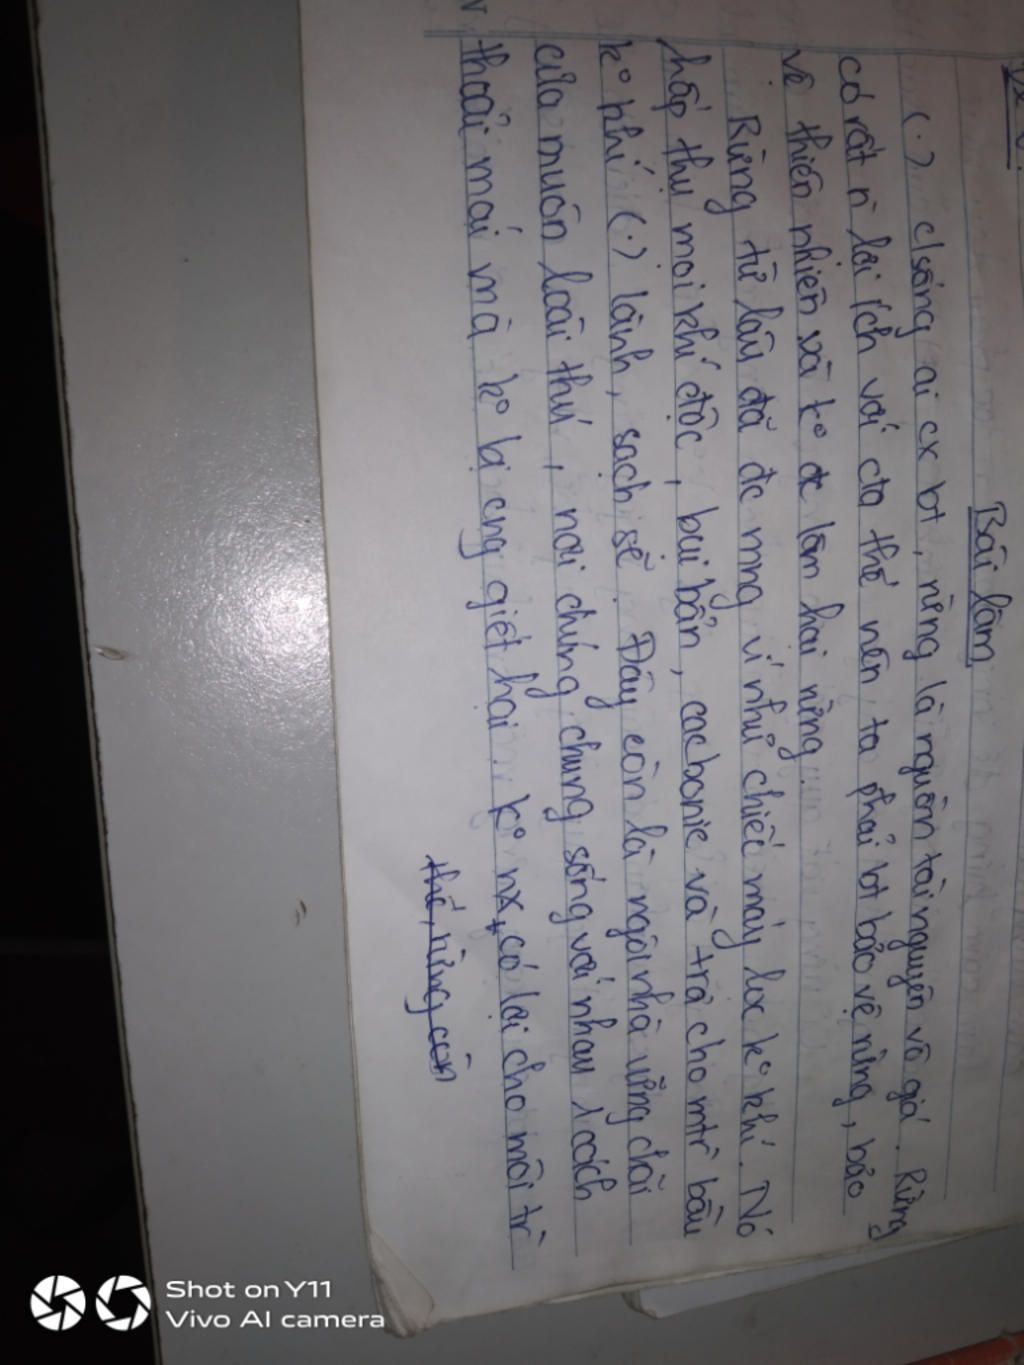 Bài làm
(.) c/sống ai cx bt, rừng là nguồn tài nguyên vô giá. Rừng
có rất n` lợi ích với cta thế nên ta phải bt bảo vệ rừng, bảo
vệ thiên nhiên và kº đc làm hại rừng.
Rừng từ lâu đã đc mng ví như chiếc máy lọc kº khí. Nó
hấp thụ mọi khí độc, bụi bẩn, cacbonic và trả cho mtr` bầu
kº khí (.) lành, sạch sẽ. Đây còn là ngôi nhà vững chãi
của muôn loài thú, nơi chúng chung sống với nhau 1 cách
thoải mái mà kº bị cng giết hại. kº nx, có lợi cho môi tr`
thế, rừng còn
Shot on Y11
Vivo AI camera